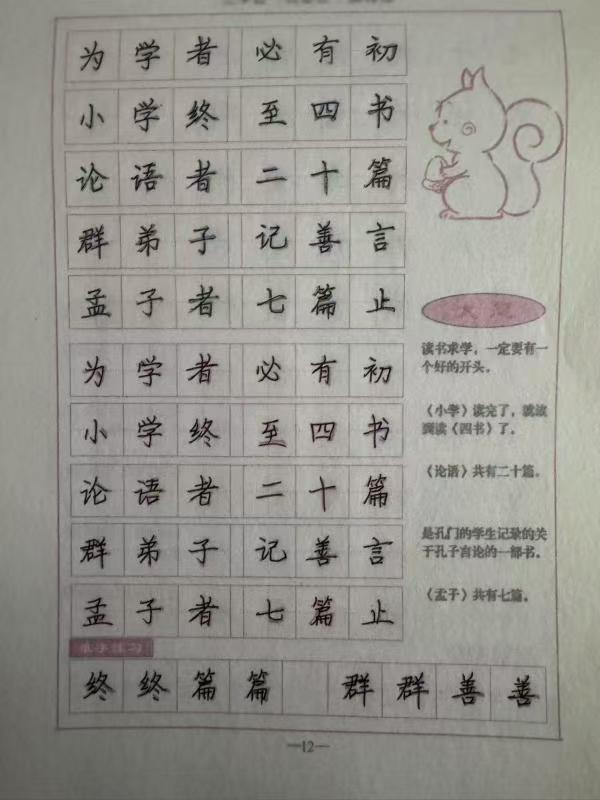 为学者必有初
小学终至四书
论语者二十篇
群弟子记善言
孟子者七篇止
为学者必有初
小学终至四书
论语者二十篇
群弟子记善言
孟子者七篇止
单字练习
终终篇篇 群群善善
大意
读书求学，一定要有一
个好的开头。
《小学》读完了，就该
到读《四书》了。
《论语》共有二十篇。
是孔门的学生记录的关
于孔子言论的一部书。
《孟子》共有七篇。
—12—